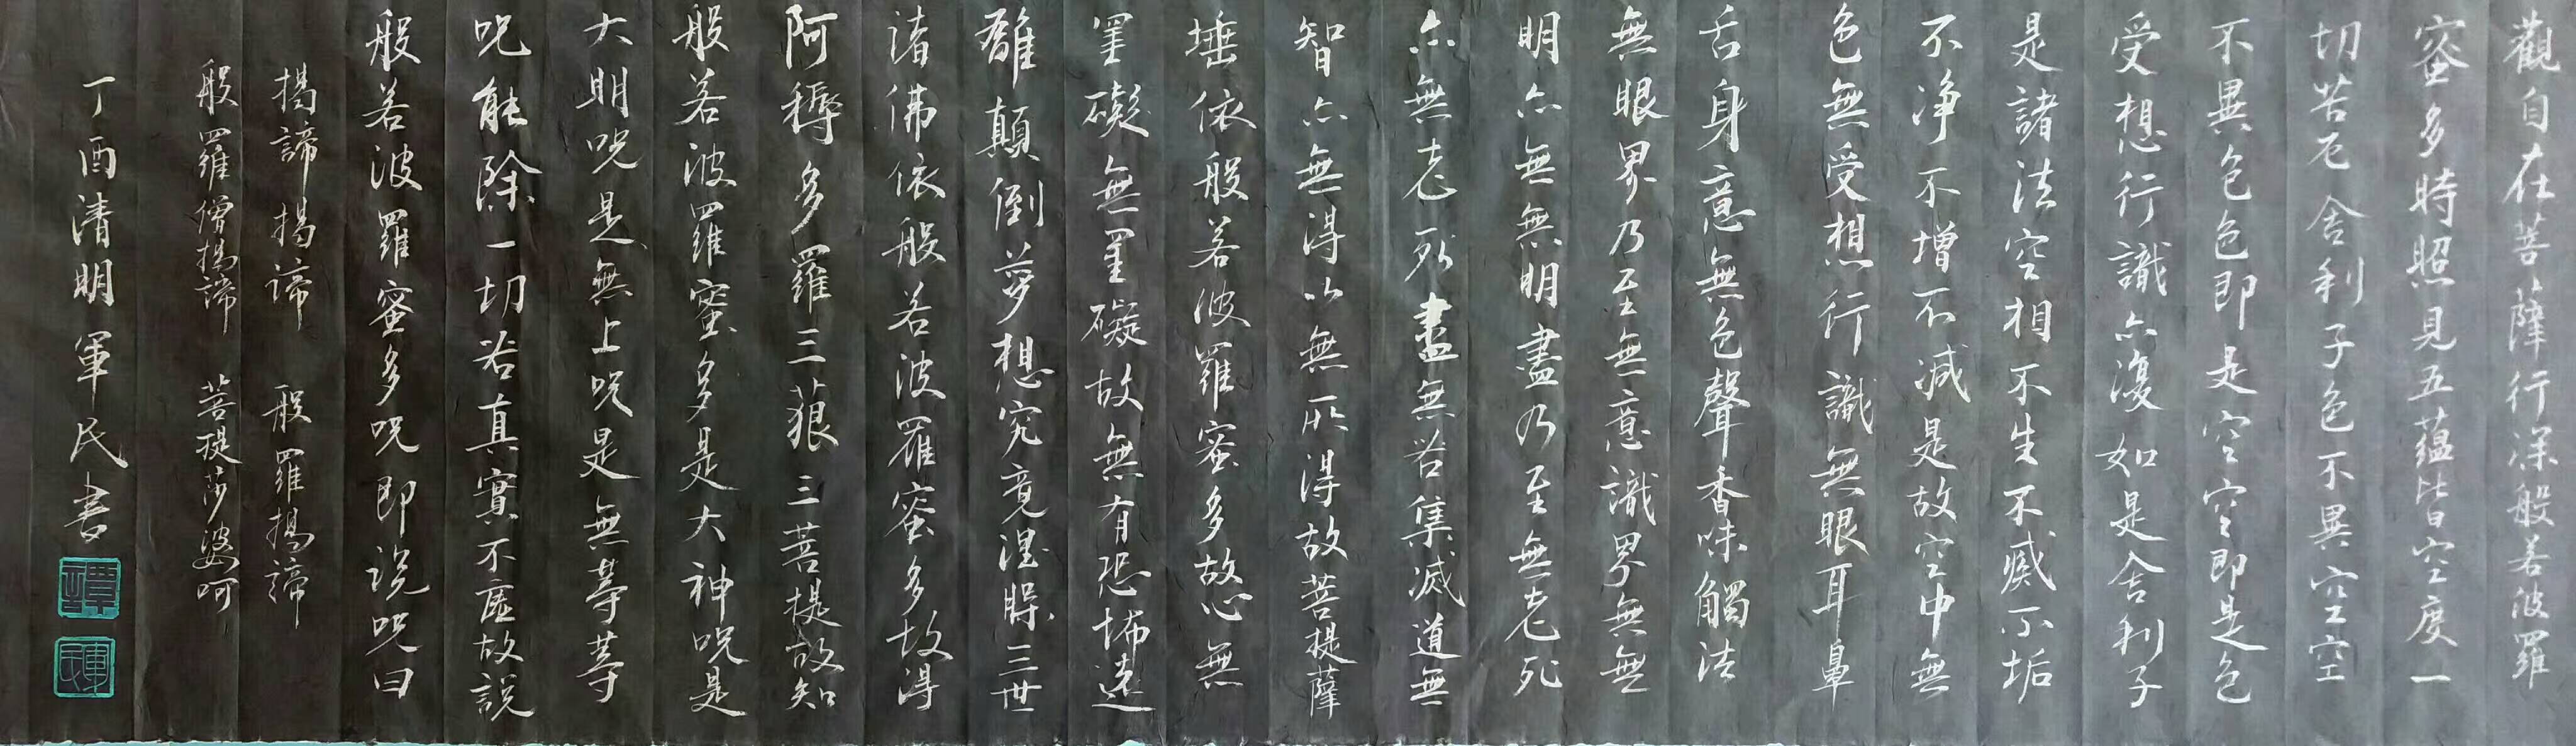 觀自在菩薩行深般若波羅
蜜多時照見五蘊皆空度一
切苦厄舍利子色不異空空
不異色色即是空空即是色
受想行識亦復如是舍利子
是諸法空相不生不滅不垢
不净不增不减是故空中無
色無受想行識無眼耳鼻
舌身意無色聲香味觸法
無眼界乃至無意識界無無
明亦無無明盡乃至無老死
亦無老死盡無苦集滅道無
智亦無得以無所得故菩提薩
埵依般若波羅蜜多故心無
罣礙無罣礙故無有恐怖遠
離顛倒夢想究竟涅槃三世
諸佛依般若波羅蜜多故得
阿耨多羅三藐三菩提故知
般若波羅蜜多是大神咒是
大明咒是無上咒是無等等
咒能除一切苦真實不虛故說
般若波羅蜜多咒即说咒曰
揭諦揭諦 般羅揭諦
般羅僧揭諦 菩提莎婆呵
丁酉清明軍民書